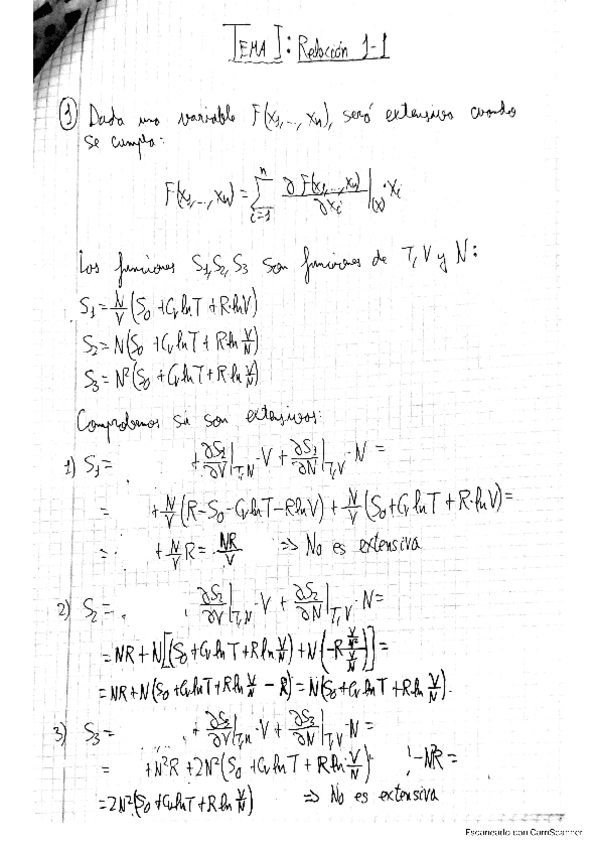 TEMA I: Relación 1-1
① Dada una variable F(x₁,..., xₙ), será extensiva cuando
se cumpla:
F(x₁,..., xₙ) = Σⁿᵢ₌₁ ∂F(x₁,...,xₙ)/∂xᵢ |₍ₓ₎ · xᵢ
Las funciones S₁, S₂, S₃ son funciones de T, V y N:
S₁ = N/V (S₀ + Cᵥ ln T + R·ln V)
S₂ = N(S₀ + Cᵥ ln T + R·ln V/N)
S₃ = N²(S₀ + Cᵥ ln T + R ln V/N)
Comprobemos si son extensivas:
1) S₁ = + ∂S₁/∂V |T,N · V + ∂S₁/∂N |T,V · N =
= + N/V (R - S₀ - Cᵥ ln T - R ln V) + N/V (S₀ + Cᵥ ln T + R·ln V) =
= + N/V R = NR/V => No es extensiva
2) S₂ = ∂S₂/∂V |T,N · V + ∂S₂/∂N |T,V · N =
= NR + N[(S₀ + Cᵥ ln T + R ln V/N) + N(-R (V/N²)/(V/N))] =
= NR + N(S₀ + Cᵥ ln T + R ln V/N - R) = N(S₀ + Cᵥ ln T + R ln V/N).
3) S₃ = + ∂S₃/∂V |T,N · V + ∂S₃/∂N |T,V · N =
= + N²R + 2N²(S₀ + Cᵥ ln T + R ln V/N) - N²R =
= 2N²(S₀ + Cᵥ ln T + R ln V/N) => No es extensiva
Escaneado con CamScanner